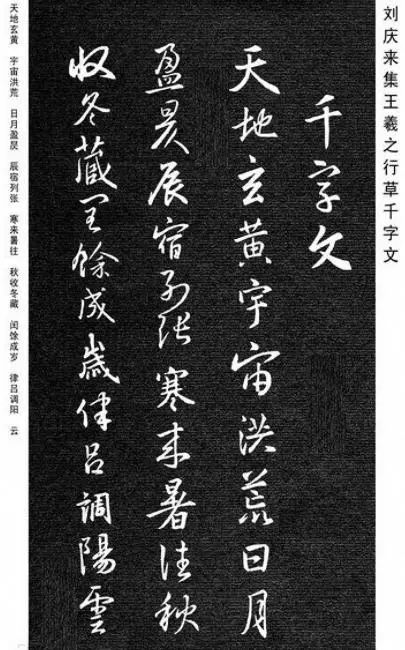 刘庆来集王羲之行草千字文
千字文
天地玄黄宇宙洪荒日月
盈昃辰宿列张寒来暑往秋
收冬藏闰馀成歲律吕調陽雲
天地玄黄 宇宙洪荒 日月盈昃 辰宿列张 寒来暑往 秋收冬藏 闰馀成岁 律吕调阳 云